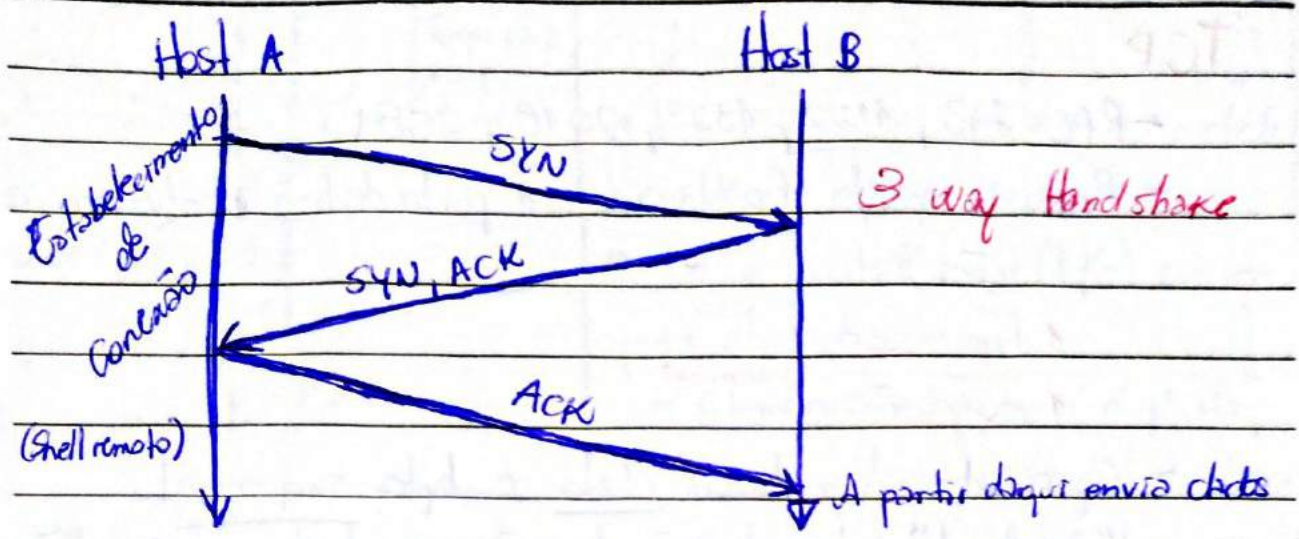 Host A
Host B
Estabelecimento
de
Conexão
SYN
3 way Handshake
SYN, ACK
ACK
(Shell remoto)
A partir daqui envia dados